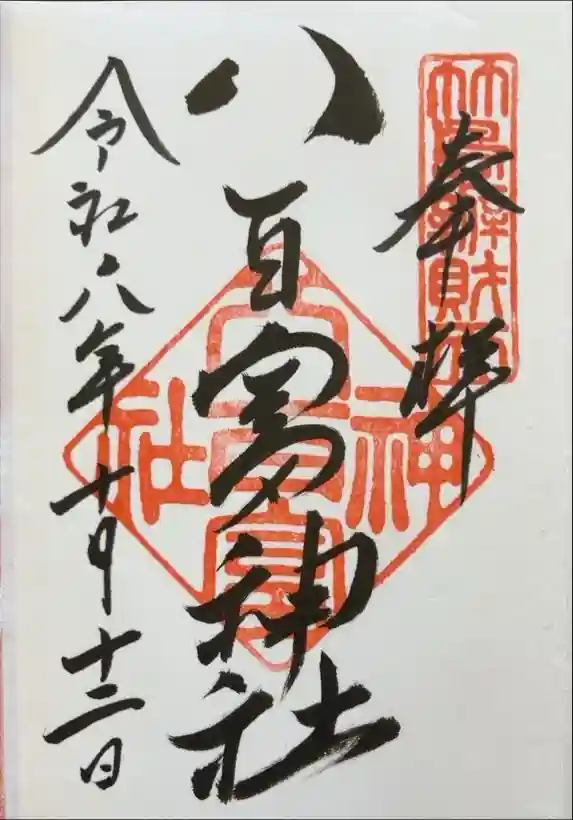 奉拝
竹島辨財天
八百富神社
八百富神社
令和六年十月十二日